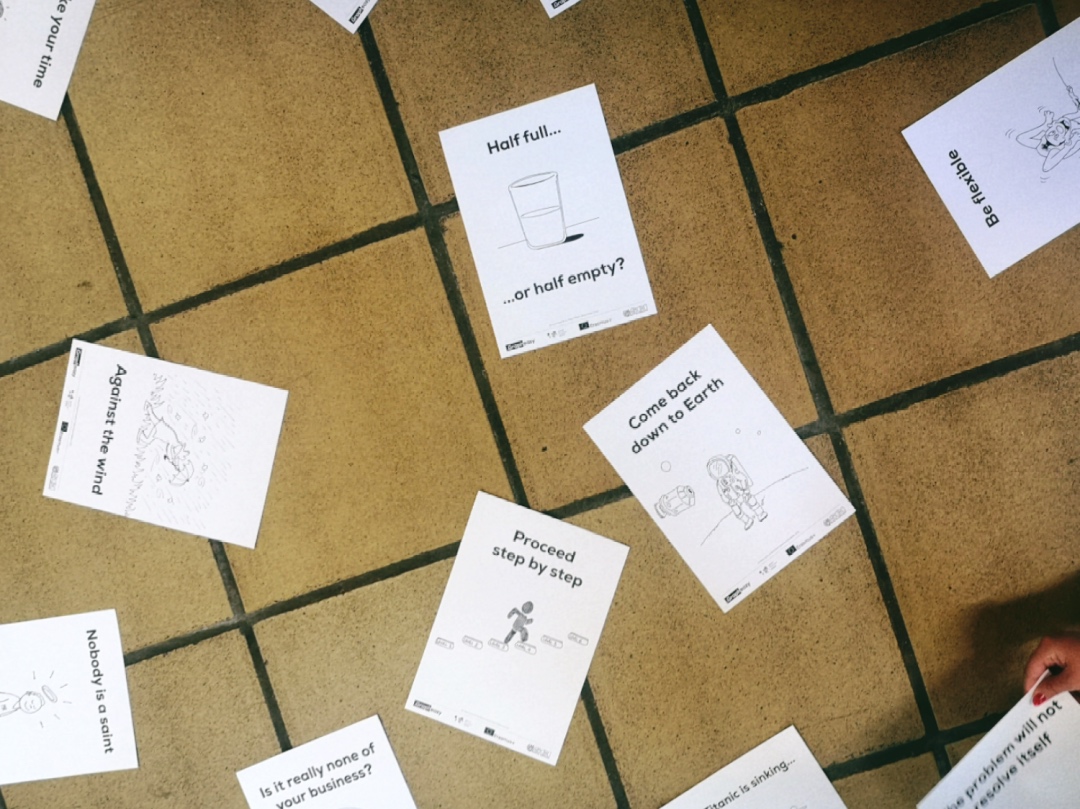 your time
Half full...
...or half empty?
Be flexible
Against the wind
Come back
down to Earth
Proceed
step by step
Nobody is a saint
Is it really none of
your business?
Titanic is sinking...
problem will not
resolve itself